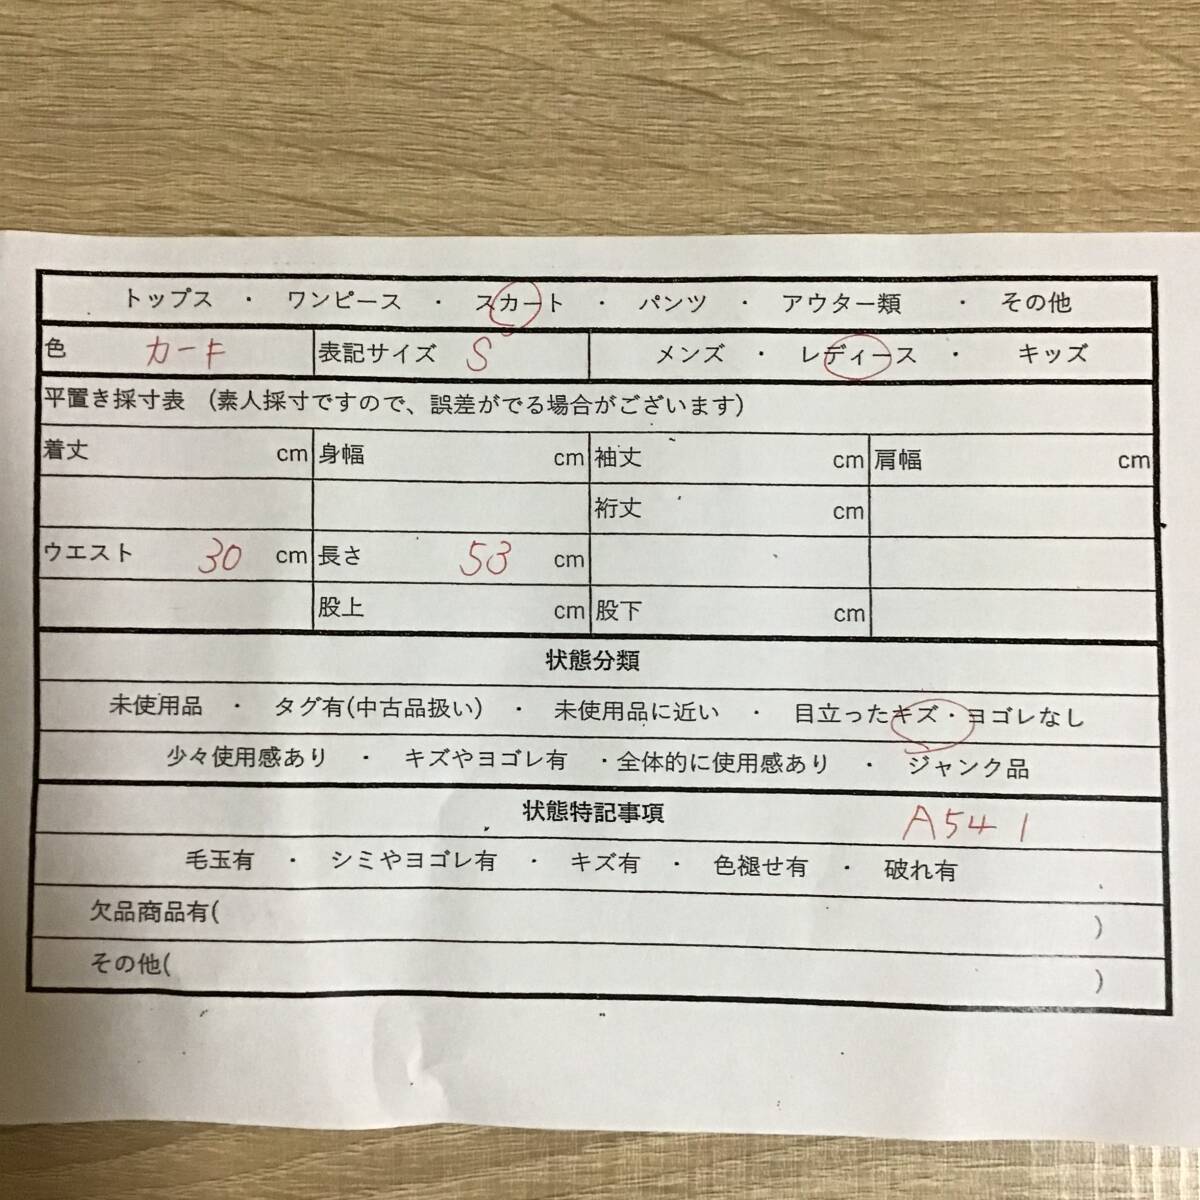 トップス ・ ワンピース ・ スカート ・ パンツ ・ アウター類 ・ その他
色 カーキ 表記サイズ S メンズ ・ レディース ・ キッズ
平置き採寸表 (素人採寸ですので、誤差がでる場合がございます)
着丈 cm 身幅 cm 袖丈 cm 肩幅 cm
裄丈 cm
ウエスト 30 cm 長さ 53 cm
股上 cm 股下 cm
状態分類
未使用品 ・ タグ有(中古品扱い) ・ 未使用品に近い ・ 目立ったキズ・ヨゴレなし
少々使用感あり ・ キズやヨゴレ有 ・全体的に使用感あり ・ ジャンク品
状態特記事項 A541
毛玉有 ・ シミやヨゴレ有 ・ キズ有 ・ 色褪せ有 ・ 破れ有
欠品商品有( )
その他( )